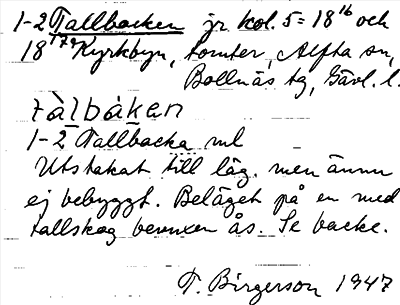 1-2 Tallbacken jr kol. 5 = 18¹⁶ och
18¹⁷ᵃ Kyrkbyn, tomter, Alfta sn,
Bollnäs tg, Gävl. l.
tàlbàkan
1-2 Tallbacka ml
Utstakat till läg. men ännu
ej bebyggt. Beläget på en med
tallskog bevuxen ås. Se backe.
T. Birgerson 1947